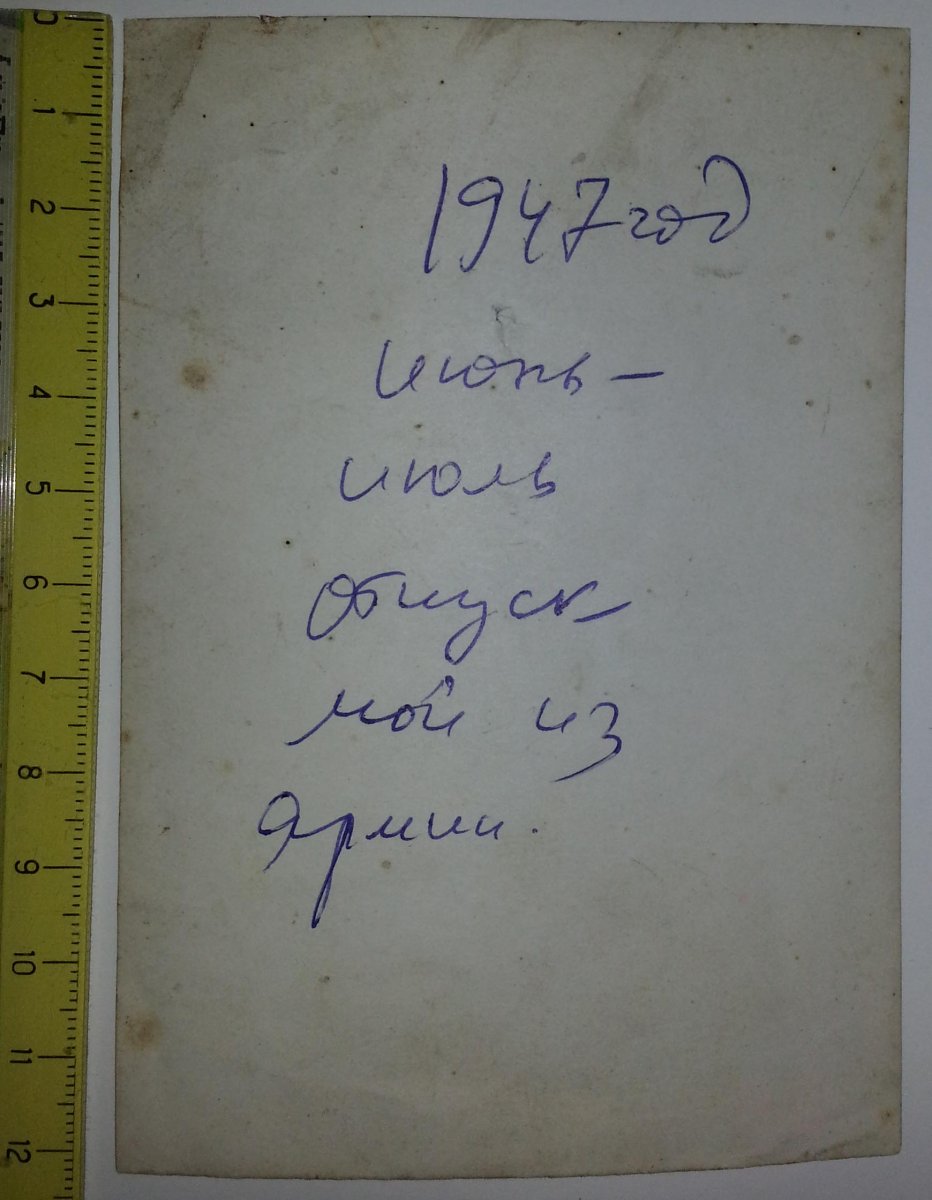 1947 год
июнь –
июль
отпуск
мой из
армии.
0
1
2
3
4
5
6
7
8
9
10
11
12